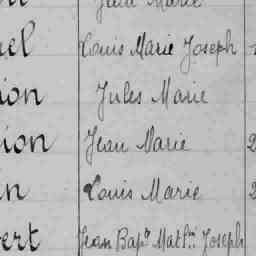 Marie
el Louis Marie Joseph
ion Jules Marie
ion Jean Marie 2
in Louis Marie 2
ert Jean Bapte Mathin Joseph